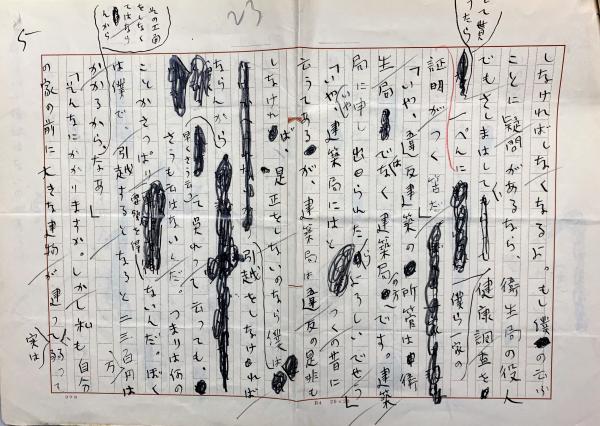 23
5
しなければしなくなるよ。もし僕の云ふ
ことに疑問があるなら、衛生局の役人
でもさしまはして
って貰
うたら
健康調査を
一ぺんに
僕らの家の
証明がつく筈だ
「いや、違反建築の所管は衛
生局でなく建築局の方です。建築
局に申し出られたらよろしいでせう」
「いやいや、建築局にはとっくの昔に
云うてあるが、建築局は違反の是非も
しなければ、是正をしないのなら僕は
引越をしなければ
ならんから
早くさう云
って呉れって云っても、
さうも云はないんだ。つまりは何の
ことかさっぱり
ないんだ。ぼく
は僕で、引越するとなると二三百万円は
かかるからなあ」
「そんなにかかりますか。しかし私も自分
の家の前に大きな建物が建って弱って
実は